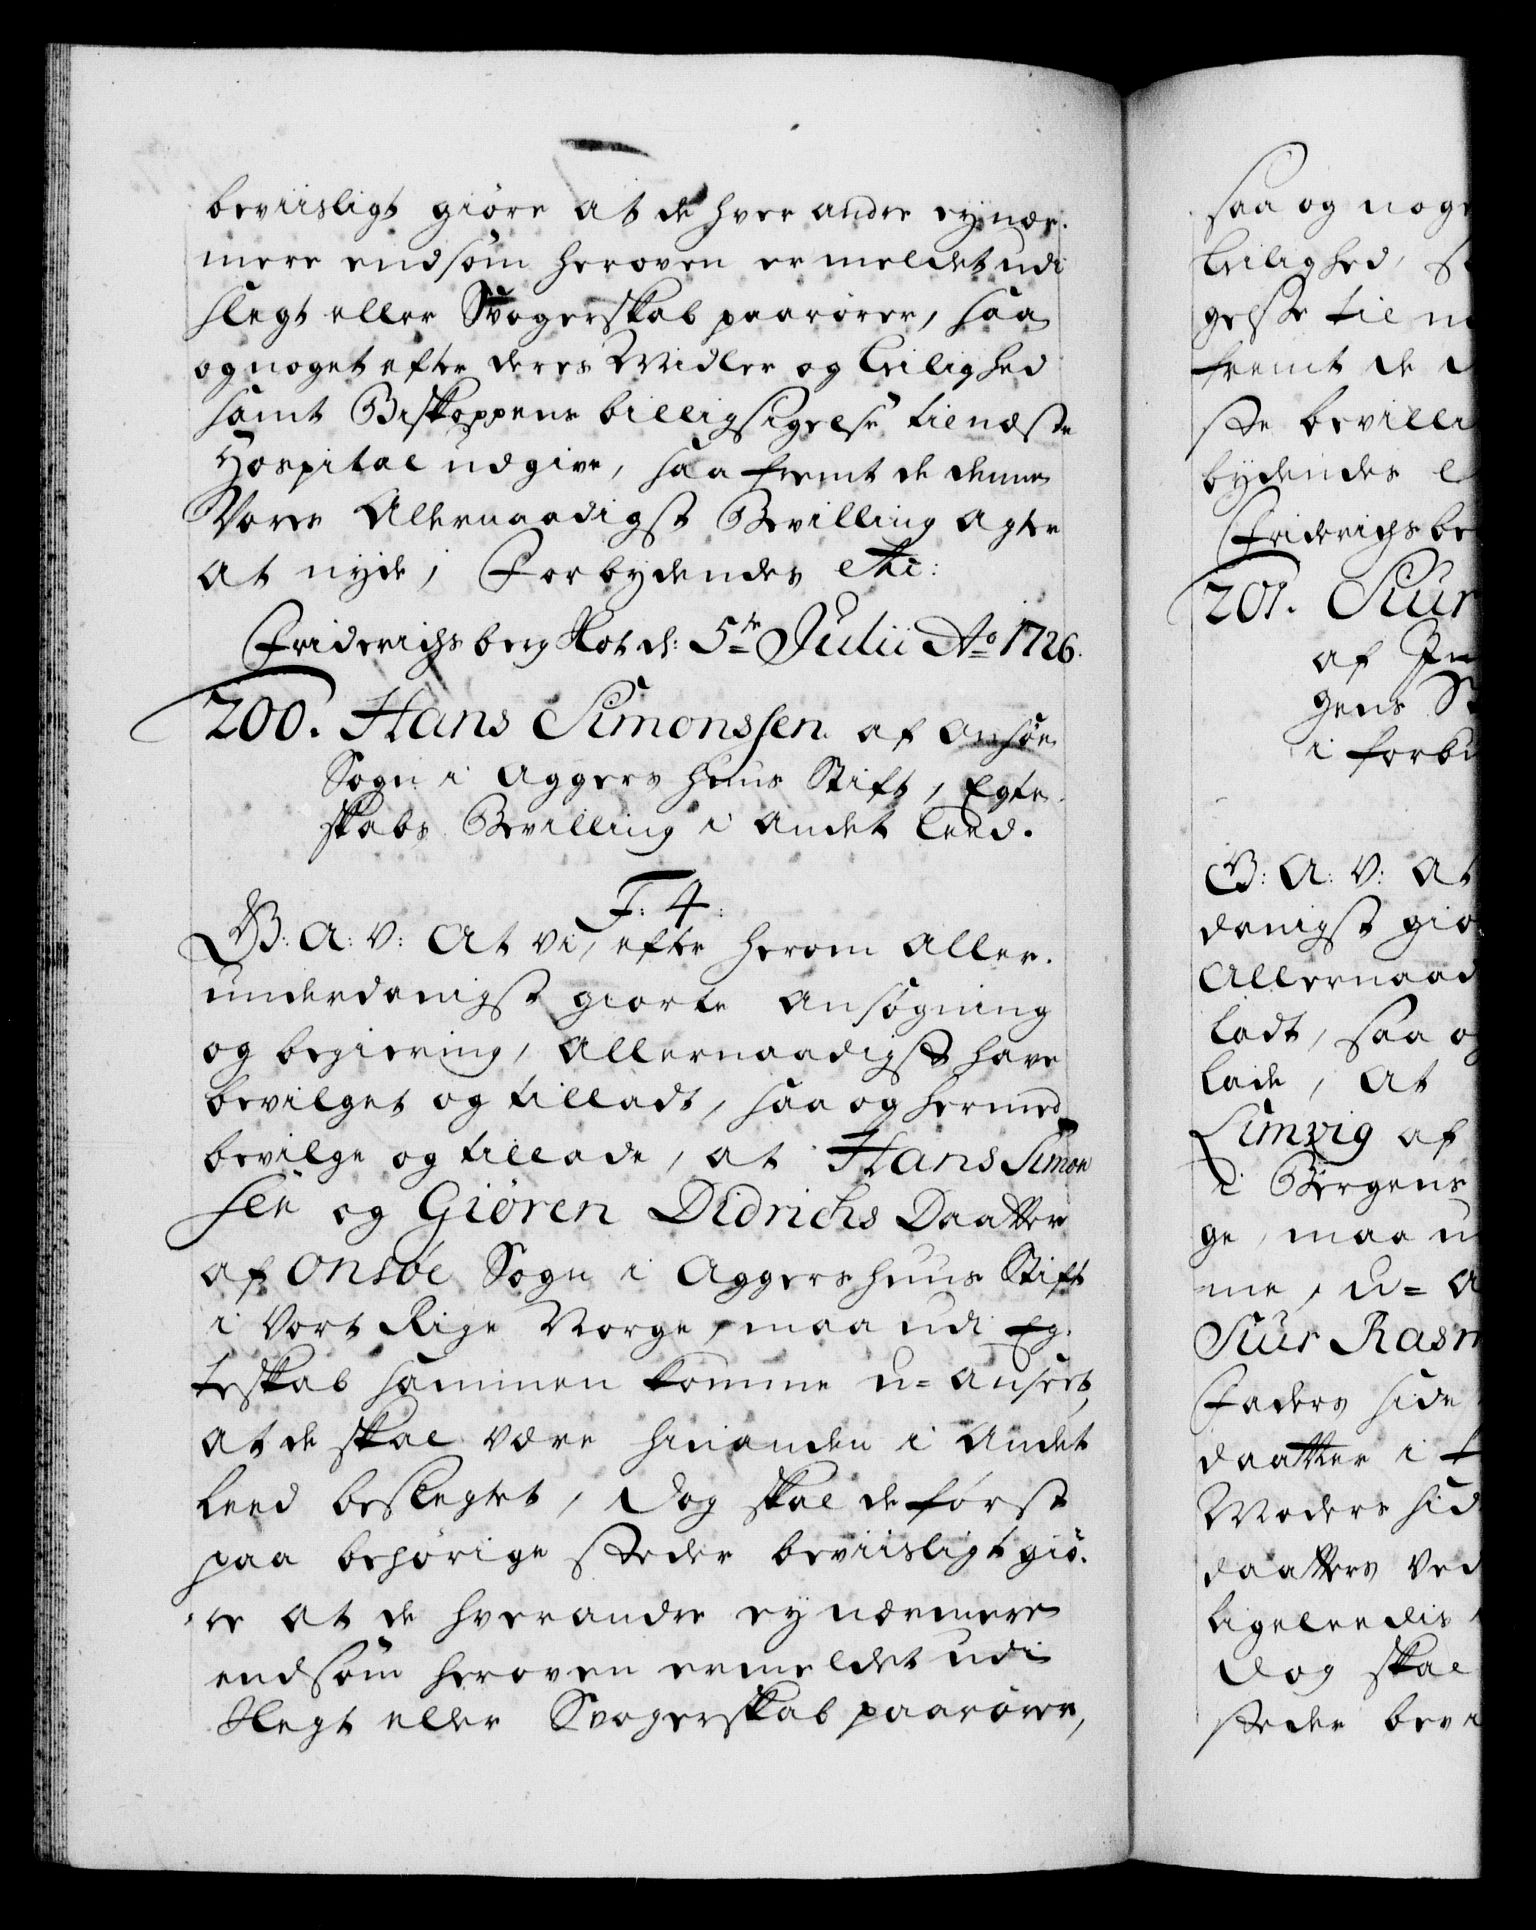 beviisligt giöre at de hver andre ey nær-
mere endsom heroven er meldet udi
slegt eller Svogerskab paarörer, saa
og noget efter deres Midler og Leilighed
samt Biskoppens billigsigelse til næste
Hospital udgive, saa fremt de denne
Vores Allernaadigst Bevilling agter
at nyde, Forbydendes etc:
Friderichsberg Slot d: 5te Julii Ao 1726.
200. Hans Simonssen af Onsöe
Sogn i Aggers huus Stift, Egte-
skabs Bevilling i andet Leed.
F: 4.
G: A: V: At vi, efter herom aller-
underdanigst giorte ansögning
og begiering, Allernaadigst have
bevilget og tilladt, saa og hermed
bevilge og tillade, at Hans Simon
sen og Giören Didrichs Daatter
af Onsöe Sogn i Aggershuus Stift
i Vort Rige Norge, maa udi Eg-
teskab sammen komme u=anseet,
at de skal være hinanden i andet
Leed beslegtet, Dog skal de först
paa behörige steder beviisligt giö-
re at de hverandre ey nærmere
endsom heroven ermeldet udi
Slegt eller Svogerskab paarörer,
saa og noge
Leilighed, s
gelse til n
fremt de d
ste bevilli
bydendes e
Friderichsbe
201. Siur
af
gens St
i forbu
G: A: V: At
danigst gio
Allernaad
ladt, saa og
lade, At
Limvig af
i Bergens
ge, maa u
me, u= A
Siur Rasm
Faders side
daatter i
Moders sid
daatters Ved
ligeleedis
Dog skal
steder bevi